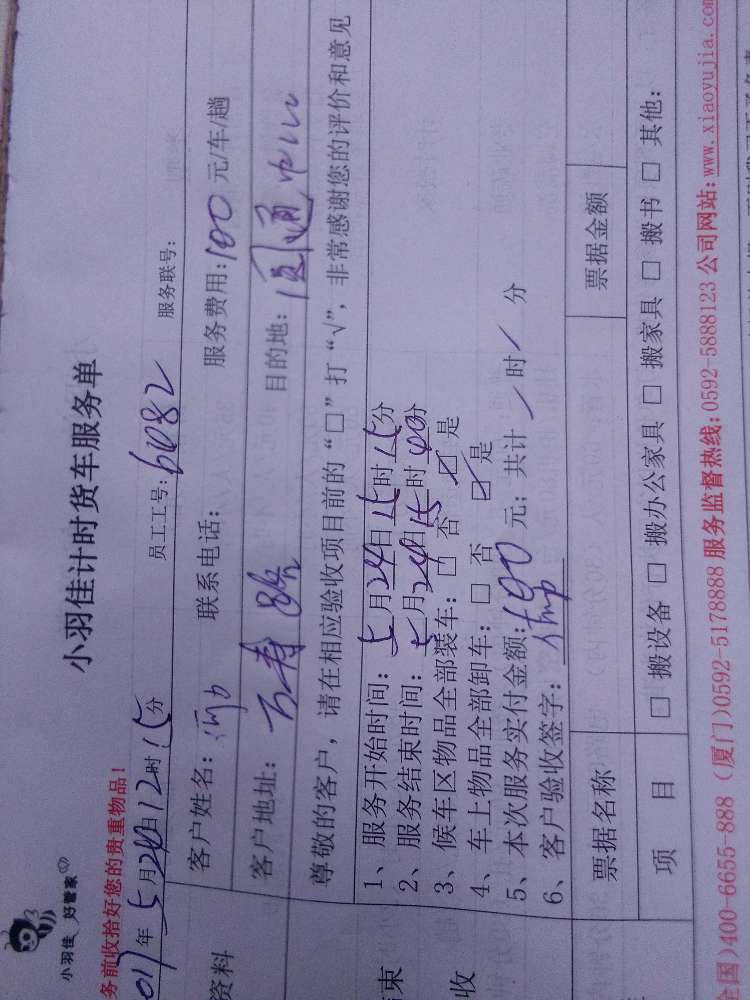 小羽佳 好管家
小羽佳计时货车服务单
务前收拾好您的贵重物品!
017年5月24日12时15分 员工工号: 6082 服务联号:
资料
客户姓名: 联系电话: 服务费用: 100元/车/趟
客户地址: 万寿路 目的地: 国通中心
尊敬的客户, 请在相应验收项目前的 "□" 打 "√", 非常感谢您的评价和意见
1、服务开始时间: 5月24日15时15分
2、服务结束时间: 5月24日15时40分
3、候车区物品全部装车: □ 否 ☑ 是
4、车上物品全部卸车: □ 否 ☑ 是
5、本次服务实付金额: 100元; 共计 / 时 / 分
6、客户验收签字:
束
收
票据名称 票据金额
项 目 □ 搬设备 □ 搬办公家具 □ 搬家具 □ 搬书 □ 其他:
全国)400-6655-888 (厦门)0592-5178888 服务监督热线: 0592-5888123 公司网站: www.xiaoyujia.com